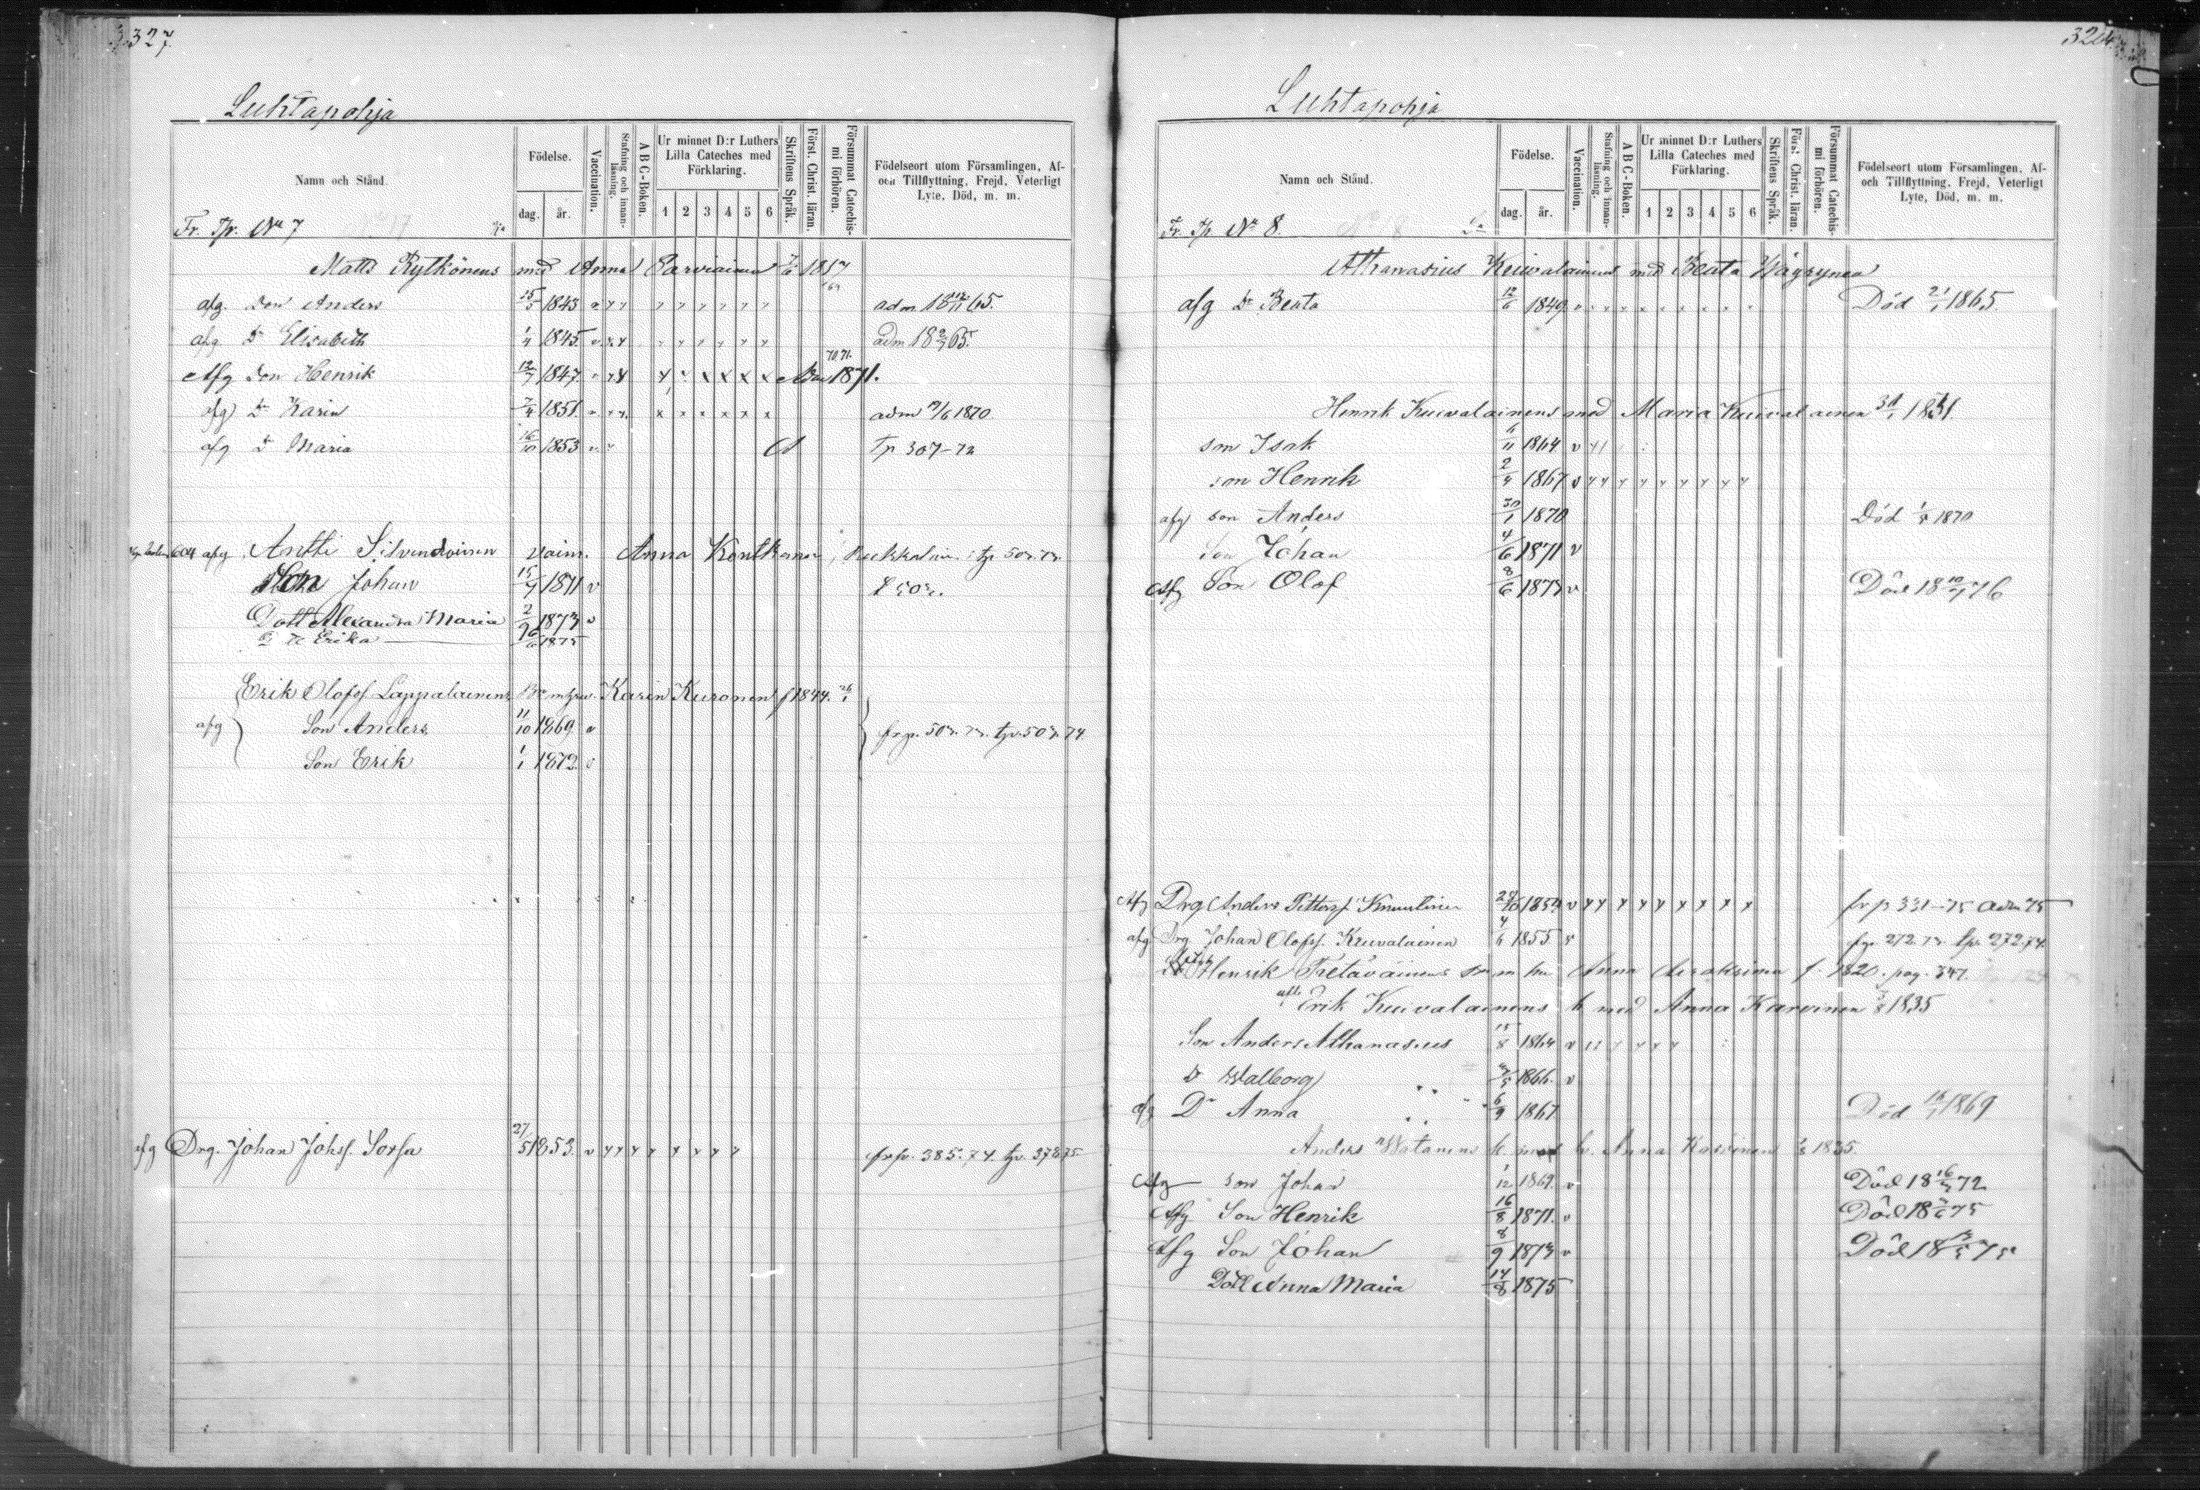 327
Luhtapohja
Namn och Stånd.
Födelse.
dag. år.
Vaccination.
Stafning och innanläsning.
A B C-Boken.
Ur minnet D:r Luthers Lilla Cateches med Förklaring.
1 2 3 4 5 6
Skriftens Språk.
Först. Christ. läran.
Försummat Catechismi förhören.
Födelseort utom Församlingen, Af- och Tillflyttning, Frejd, Veterligt Lyte, Död, m. m.
Fr. Tp. No 7
Matts Rytkönens med Anna Parviainen 1857
afg. Son Anders 15/5 1843 adm 18 65.
afg Dr Elisabeth 1/4 1845. adm 18 65.
Afg Son Henrik 12/7 1847 70 71. Adm 1871.
afg Dr Karin 7/4 1851. adm 1870
afg Dr Maria 16/10 1853 Tp 307-72
afg Antti Silvendoinen vaim. Anna Kontkanen
Son Johan 15/4 1871 v
Dott Alexandra Maria 2/9 1873 v
Erika 1875
Erik Olofss. Lappalainens Karin Kuronen f 1844.
afg Son Anders 11/10 1869 v frp. 503. 73. tp. 503. 74
Son Erik 1/1 1872. v
afg Drg. Johan Johss. Sorsa 27/5 1853. v frp. 385. 74. tp. 378 75
Luhtapohja
Namn och Stånd.
Födelse.
dag. år.
Vaccination.
Stafning och innanläsning.
A B C-Boken.
Ur minnet D:r Luthers Lilla Cateches med Förklaring.
1 2 3 4 5 6
Skriftens Språk.
Först. Christ. läran.
Försummat Catechismi förhören.
Födelseort utom Församlingen, Af- och Tillflyttning, Frejd, Veterligt Lyte, Död, m. m.
Fr. Tp No 8.
Athanasius Kuivalainens med Beata Häyrynen
afg Dr Beata 12/6 1849 Död 21/1 1865.
Henrik Kuivalainens med Maria Kuivalainen
son Isak 6/11 1864 v
son Henrik 2/4 1867 v
afg son Anders 30/1 1870 Död 1870
Son Johan 4/6 1871 v
Afg Son Olof 8/6 1873 v Död 18 76
Afg Drg Anders Pettersf Knuutinen 1854 v frp 331-75 adm 75
afg Drg Johan Olofss. Kuivalainen 4/6 1855 v frp 272 73. tp. 272 74.
Henrik Pietäväinens Anna f. 1820. pag. 347.
Erik Kuivalainens h med Anna Karvinen 1835
Son Anders Athanasius 15/8 1864 v
D Walborg 1866. v
afg Dr Anna 6/9 1867 Död 1869
Anders Watanens h med h. Anna Karvinen 1835.
Afg son Johan 1/12 1869. v Död 18 72
Afg Son Henrik 16/8 1871. v Död 18 75
Afg Son Johan 8/9 1873 v Död 18 75
Dott Anna Maria 14/8 1875